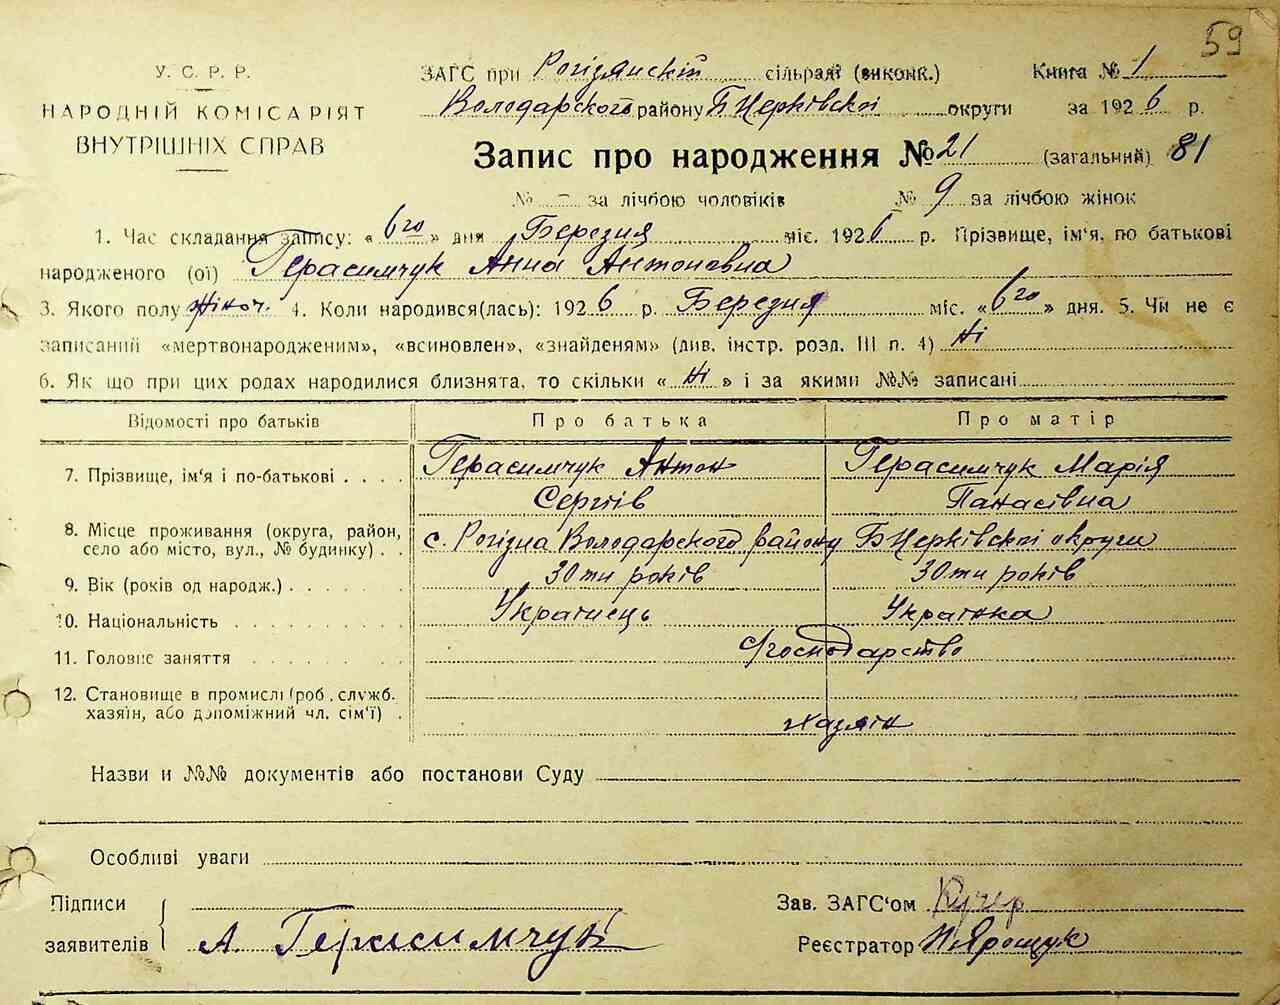 59
У. С. Р. Р.
НАРОДНІЙ КОМІСАРІЯТ
ВНУТРІШНІХ СПРАВ
ЗАГС при Рогізянскій сільраді (виконк.) Книга № 1
Володарского району БЦерківскої округи за 1926 р.
Запис про народження № 21 (загальний) 81
№ – за лічбою чоловіків № 9 за лічбою жінок
1. Час складання запису: « 6го » дня Березня міс. 1926 р. Прізвище, ім'я, по батькові
народженого (ої) Герасимчук Анна Антоновна
3. Якого полу жіноч. 4. Коли народився(лась): 1926 р. Березня міс. «6го» дня. 5. Чи не є
записаний «мертвонародженим», «всиновлен», «знайденям» (див. інстр. розд. III п. 4) Ні
6. Як що при цих родах народилися близнята, то скільки « Ні » і за якими №№ записані
Відомості про батьків Про батька Про матір
7. Прізвище, ім'я і по-батькові Герасимчук Антон Герасимчук Марія
Сергіїв Панасівна
8. Місце проживання (округа, район,
село або місто, вул., № будинку) с. Рогізна Володарского району БЦерківскої округи
9. Вік (років од народж.) 30ти років 30ти років
10. Національність Українець Українка
11. Головне заняття Господарство
12. Становище в промислі (роб., служб.
хазяїн, або допоміжний чл. сім'ї) хазяїн
Назви и №№ документів або постанови Суду
Особливі уваги
Підписи Зав. ЗАГС'ом Кучер
заявителів А Герасимчук Реєстратор Ярощук